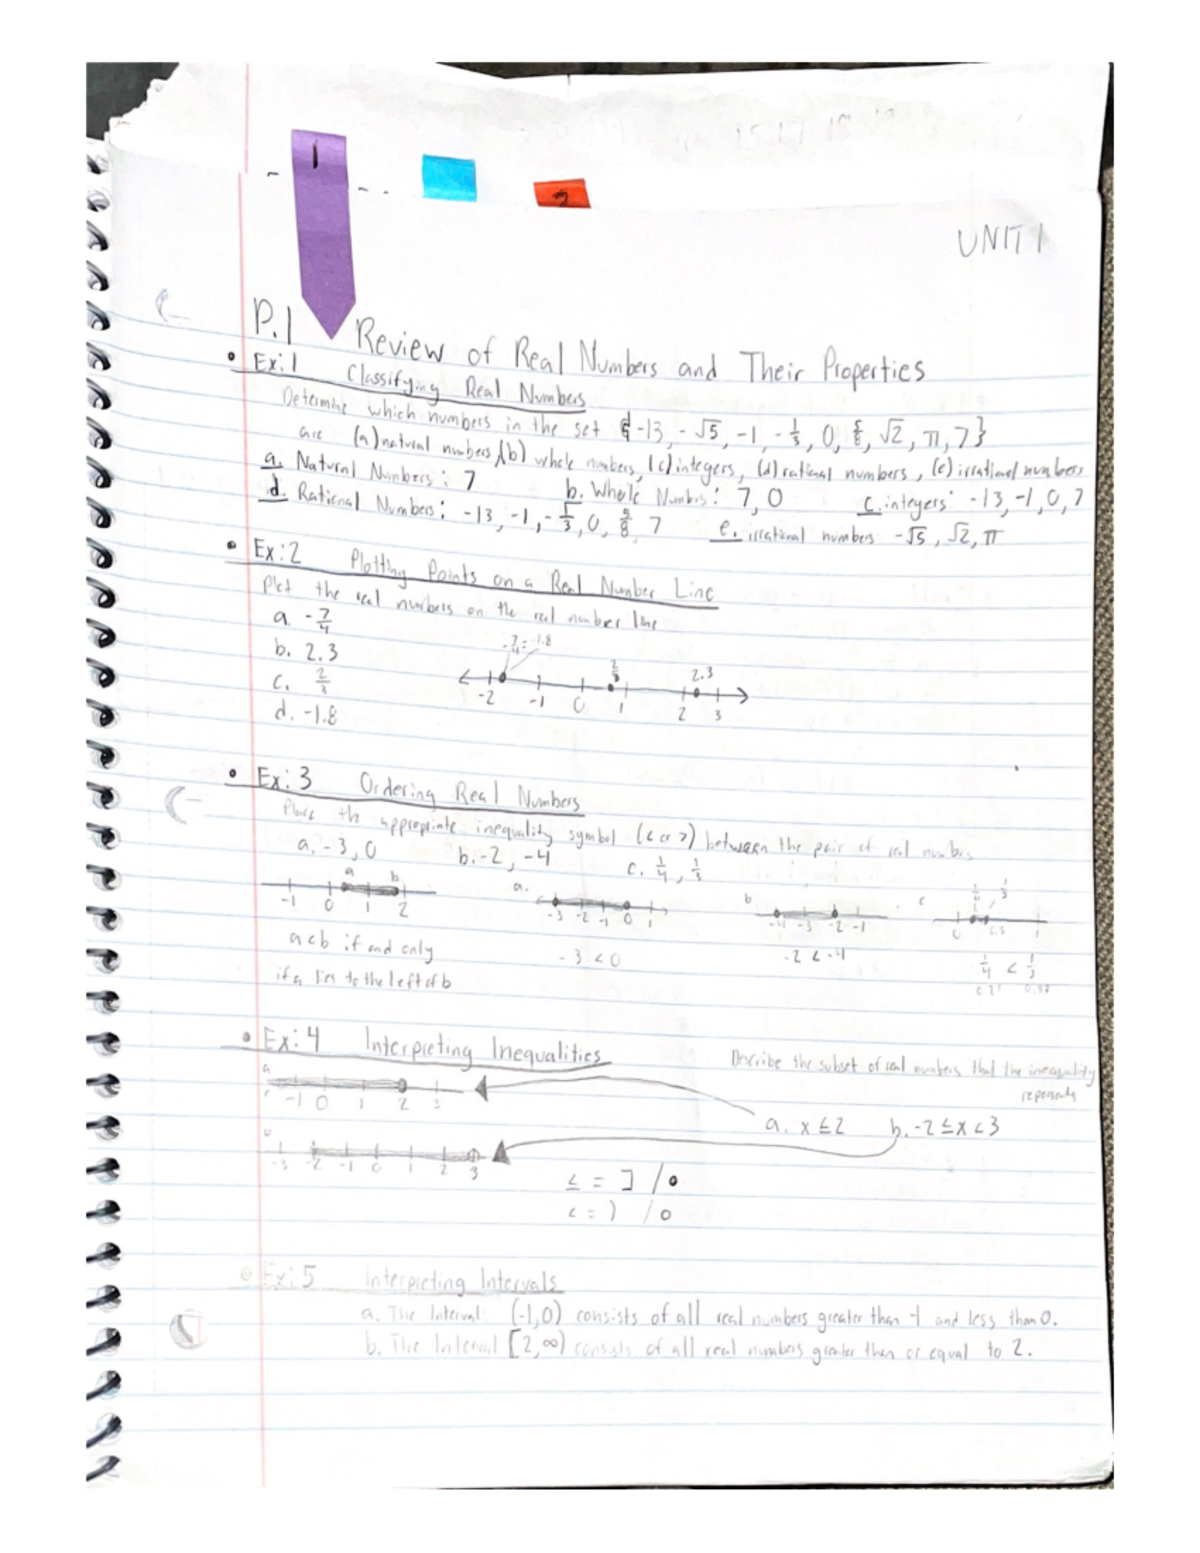 1
UNIT 1
P.1 Review of Real Numbers and Their Properties
• Ex:1 Classifying Real Numbers
Determine which numbers in the set {-13, -√5, -1, -1/3, 0, 5/8, √2, π, 7}
are (a) natural numbers, (b) whole numbers, (c) integers, (d) rational numbers, (e) irrational numbers
a. Natural Numbers: 7 b. Whole Numbrs: 7, 0 c. integers: -13, -1, 0, 7
d. Rational Numbers: -13, -1, -1/3, 0, 5/8, 7 e. irrational numbers -√5, √2, π
• Ex:2 Plotting Points on a Real Number Line
Plot the real numbers on the real number line
a. -7/4
b. 2.3
c. 2/3
d. -1.8
-7/4 = -1.8 2/3 2.3
-2 -1 0 1 2 3
• Ex:3 Ordering Real Numbers
Place the appropriate inequality symbol (< or >) between the pair of real numbers
a. -3, 0 b. -2, -4 c. 1/4, 1/3
a b
-1 0 1 2
a. -3 -2 -1 0 1
b -4 -3 -2 -1
c 1/4, 1/3
0 1
a<b if and only
if a lies to the left of b
-3 < 0
-2 < -4
1/4 < 1/3
• Ex:4 Interpreting Inequalities
Describe the subset of real numbers that the inequality
represents
a. x ≤ 2 b. -2 ≤ x < 3
a
-1 0 1 2 3
b
-3 -2 -1 0 1 2 3
≤ = ] / •
< = ) / o
Ex:5 Interpreting Intervals
a. The Interval (-1,0) consists of all real numbers greater than -1 and less than 0.
b. The Interval [2,∞) consists of all real numbers greater than or equal to 2.